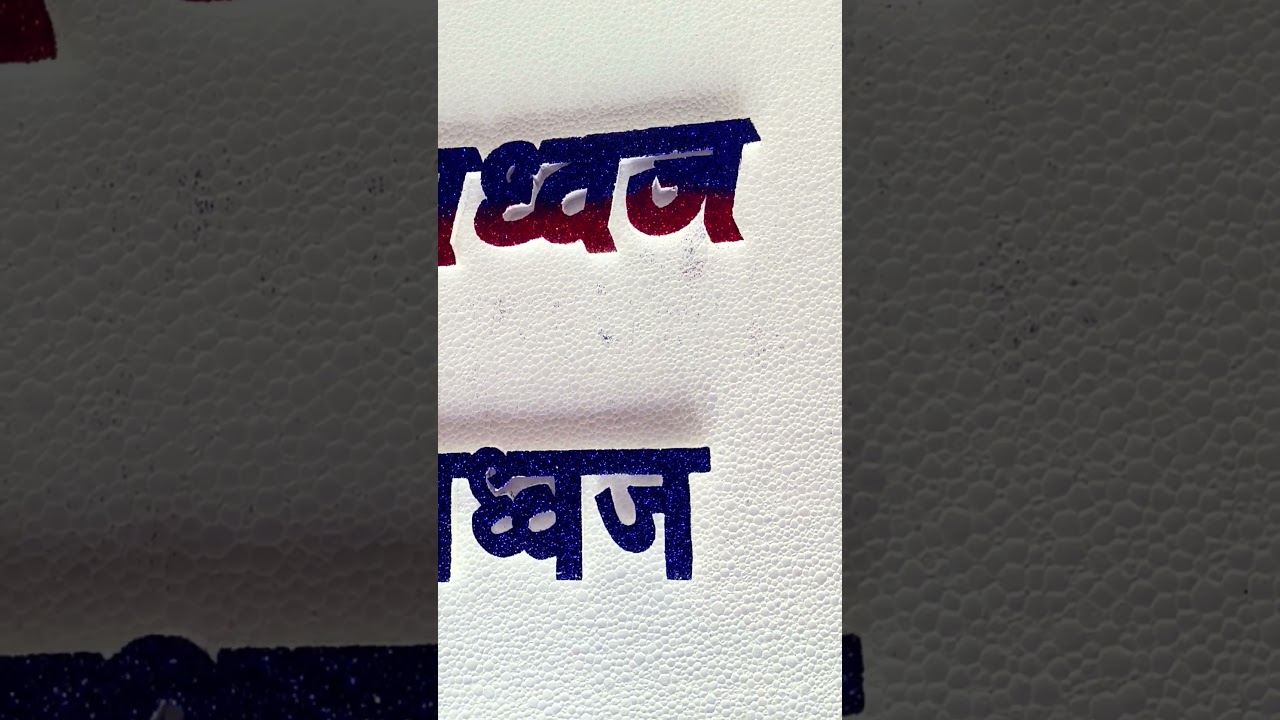 ध्वज
ध्वज